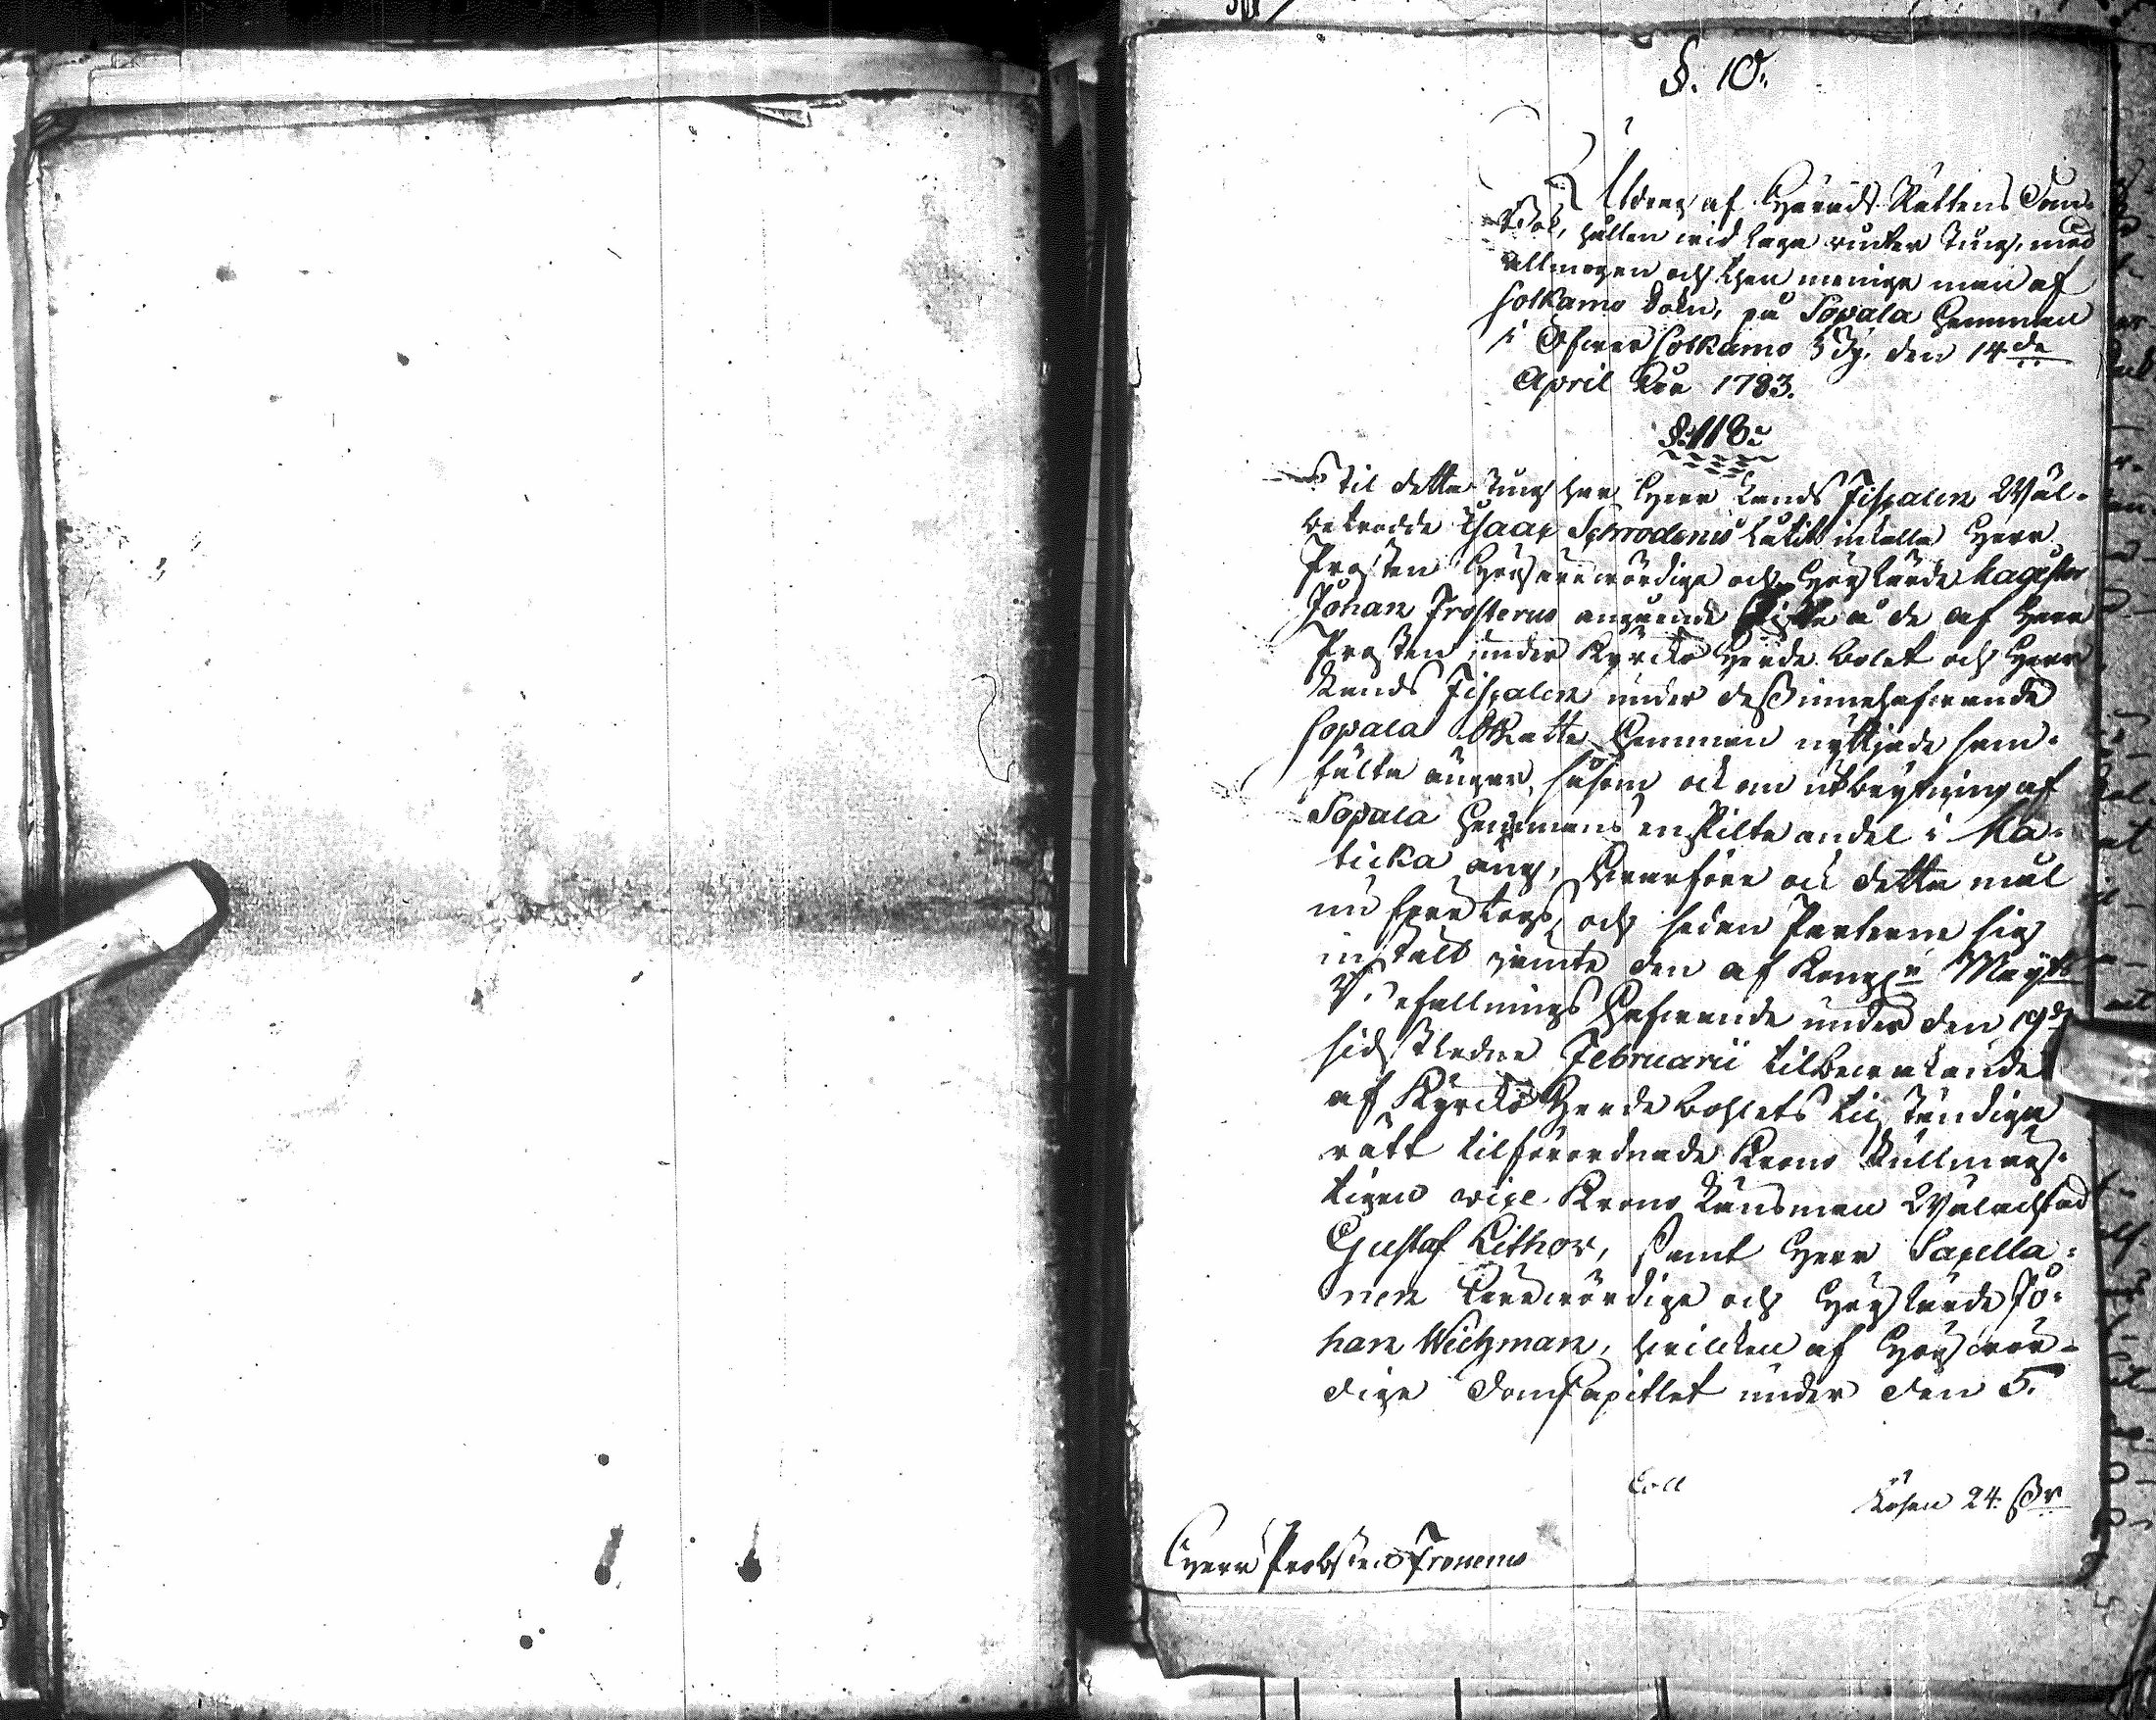 §. 10.
Utdrag af Härads Rättens Dom-
Bok, hållen wid laga winter Ting, med
allmogen och then menige man af
Sotkamo Sokn, på Sopala Hemman
i Öfwer Sotkamo By, den 14de
April Åhr 1783.
§. 118.
Til detta Ting har Herr Lands Fiscalen Wäl-
betrodde Isaac Schroderus låtit instella Herr
Prosten Högärewördige och Höglärde Magister
Johan Frosterus angående å de af Herr
Prosten under Kyrcko Herde bolet och Herr
Lands Fiscalen under deß innehafwande
Sopala Skatte Hemman nyttjade sam-
fälta ängar, såsom ock om utbrytning af
Sopala Hemmans enskilta andel i Ma-
ticka äng, hwarföre ock detta mål
nu företogs, och sedan Parterne sig
instält jämte den af Kongl. Maÿts
Befallnings Hafwande under den 19de
sidstledne Februarii til bewakande
af Kyrcko Herde bohlets ständiga
rätt tilförordnade Krono fullmäg-
tigen wice Krono Länsman Wälachtad
Gustaf Lithov, samt Herr Capella-
nen Ärewördige och Höglärde Jo-
han Wichman, hwilcken af Högwör-
dige DomCapitlet under den 5.
Coll
Lösen 24. ßr
Herr Probsten Frosterus